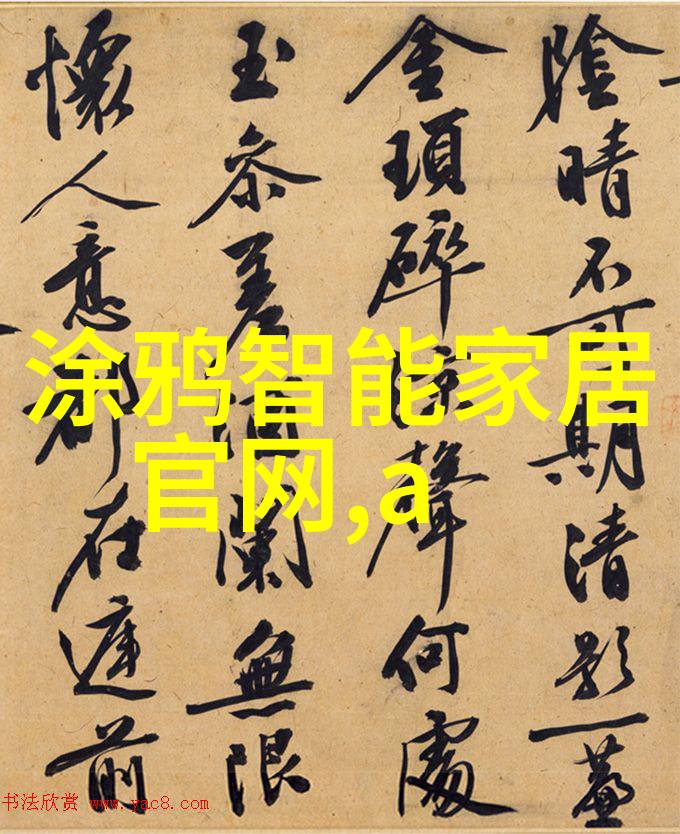 陰晴不可期清影一簾
金瑣碎涼聲何處
玉參差酒闌無限
懷人意都在庭前
涂鸦智能家居
官网,a
书法欣赏 www.yac8.com